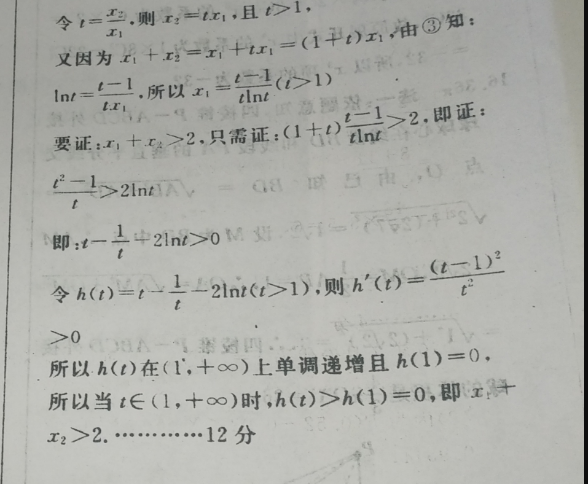 令 t=x₂/x₁,则 x₂=tx₁,且 t>1,
又因为 x₁+x₂=x₁+tx₁=(1+t)x₁,由③知:
lnt=(t-1)/(tx₁),所以 x₁=(t-1)/(tlnt)(t>1)
要证:x₁+x₂>2,只需证:(1+t)(t-1)/(tlnt)>2,即证:
(t²-1)/t>2lnt
即:t-1/t-2lnt>0
令 h(t)=t-1/t-2lnt(t>1),则 h′(t)=(t-1)²/t²
>0
所以 h(t)在(1,+∞)上单调递增且 h(1)=0,
所以当 t∈(1,+∞)时,h(t)>h(1)=0,即 x₁+
x₂>2.…………12 分